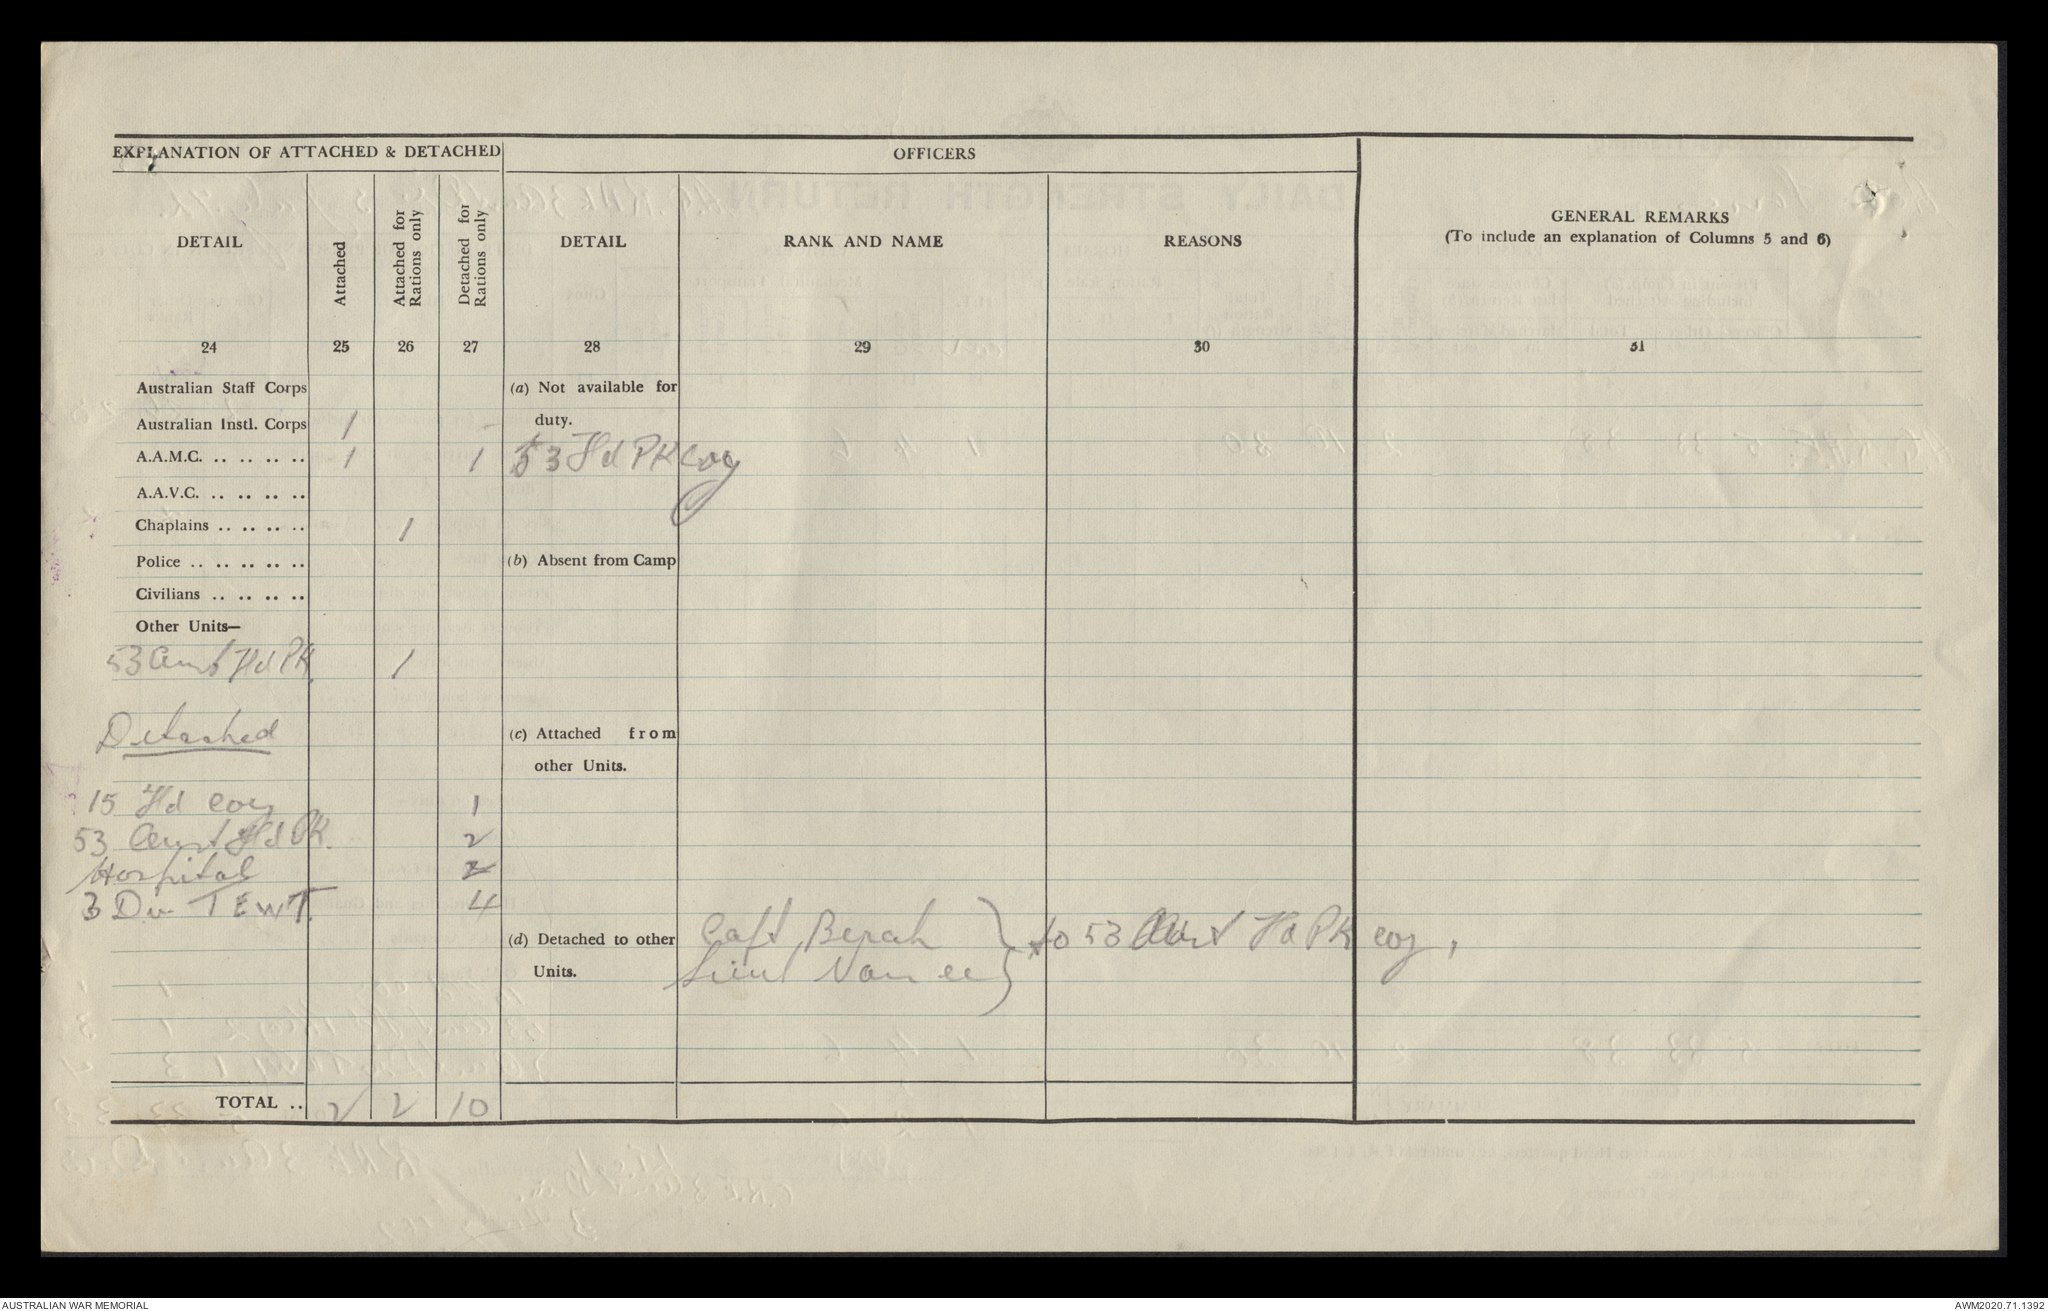 EXPLANATION OF ATTACHED & DETACHED
OFFICERS
GENERAL REMARKS
(To include an explanation of Columns 5 and 6)
DETAIL
Attached
Attached for Rations only
Detached for Rations only
DETAIL
RANK AND NAME
REASONS
24 25 26 27 28 29 30 31
Australian Staff Corps
(a) Not available for
duty.
Australian Instl. Corps 1
A.A.M.C. .. .. .. .. 1 1 53 Fd PK Coy
A.A.V.C. .. .. .. ..
Chaplains .. .. .. .. 1
Police .. .. .. .. ..
(b) Absent from Camp
Civilians .. .. .. ..
Other Units—
53 Aust Fd PK. 1
Detached
(c) Attached from
other Units.
15 Fd Coy 1
53 Aust Fd PK. 2
Hospital 2
3 Div TEWT. 4
(d) Detached to other
Units.
Capt
Lieut
} to 53 Aust Fd PK Coy.
TOTAL .. 2 2 10
AUSTRALIAN WAR MEMORIAL
AWM2020.71.1392